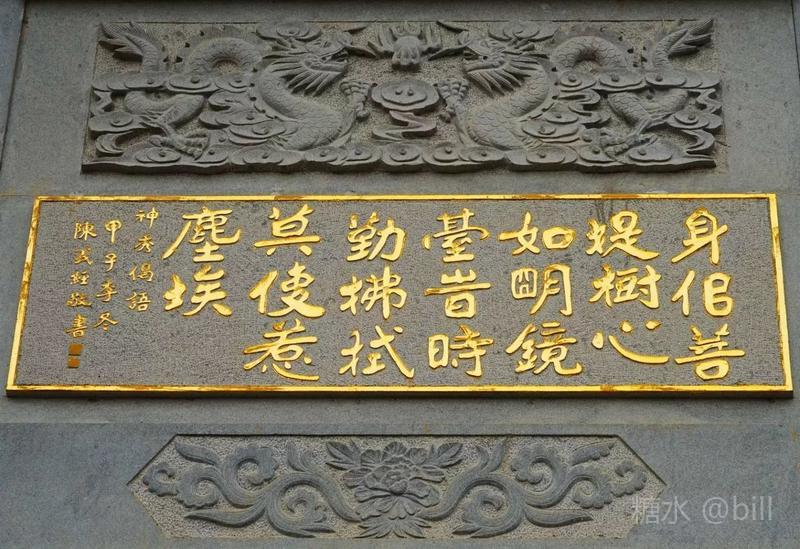 身佀菩
堤樹心
如明鏡
臺旹時
勤拂拭
莫使惹
塵埃
神秀偈語
甲子季冬
陳經敬書
糖水 @bill